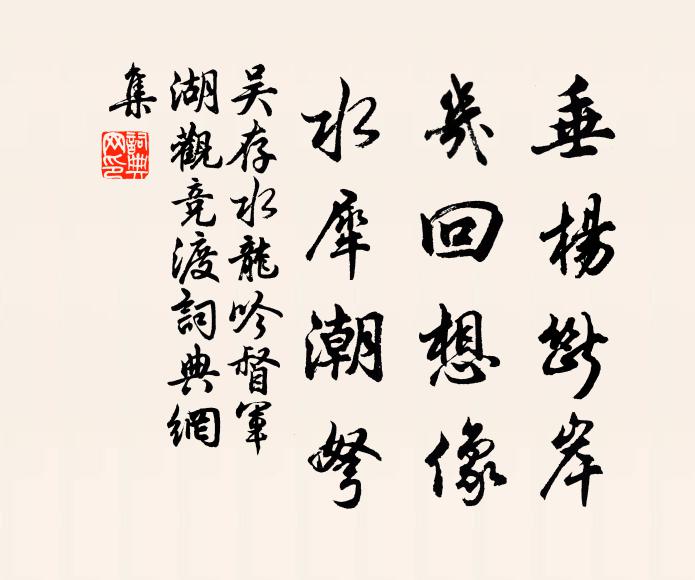 垂楊斷岸
幾回想像
水犀潮弩
吴存水龍吟督軍
湖觀竞渡詞典網
集
詞典網印